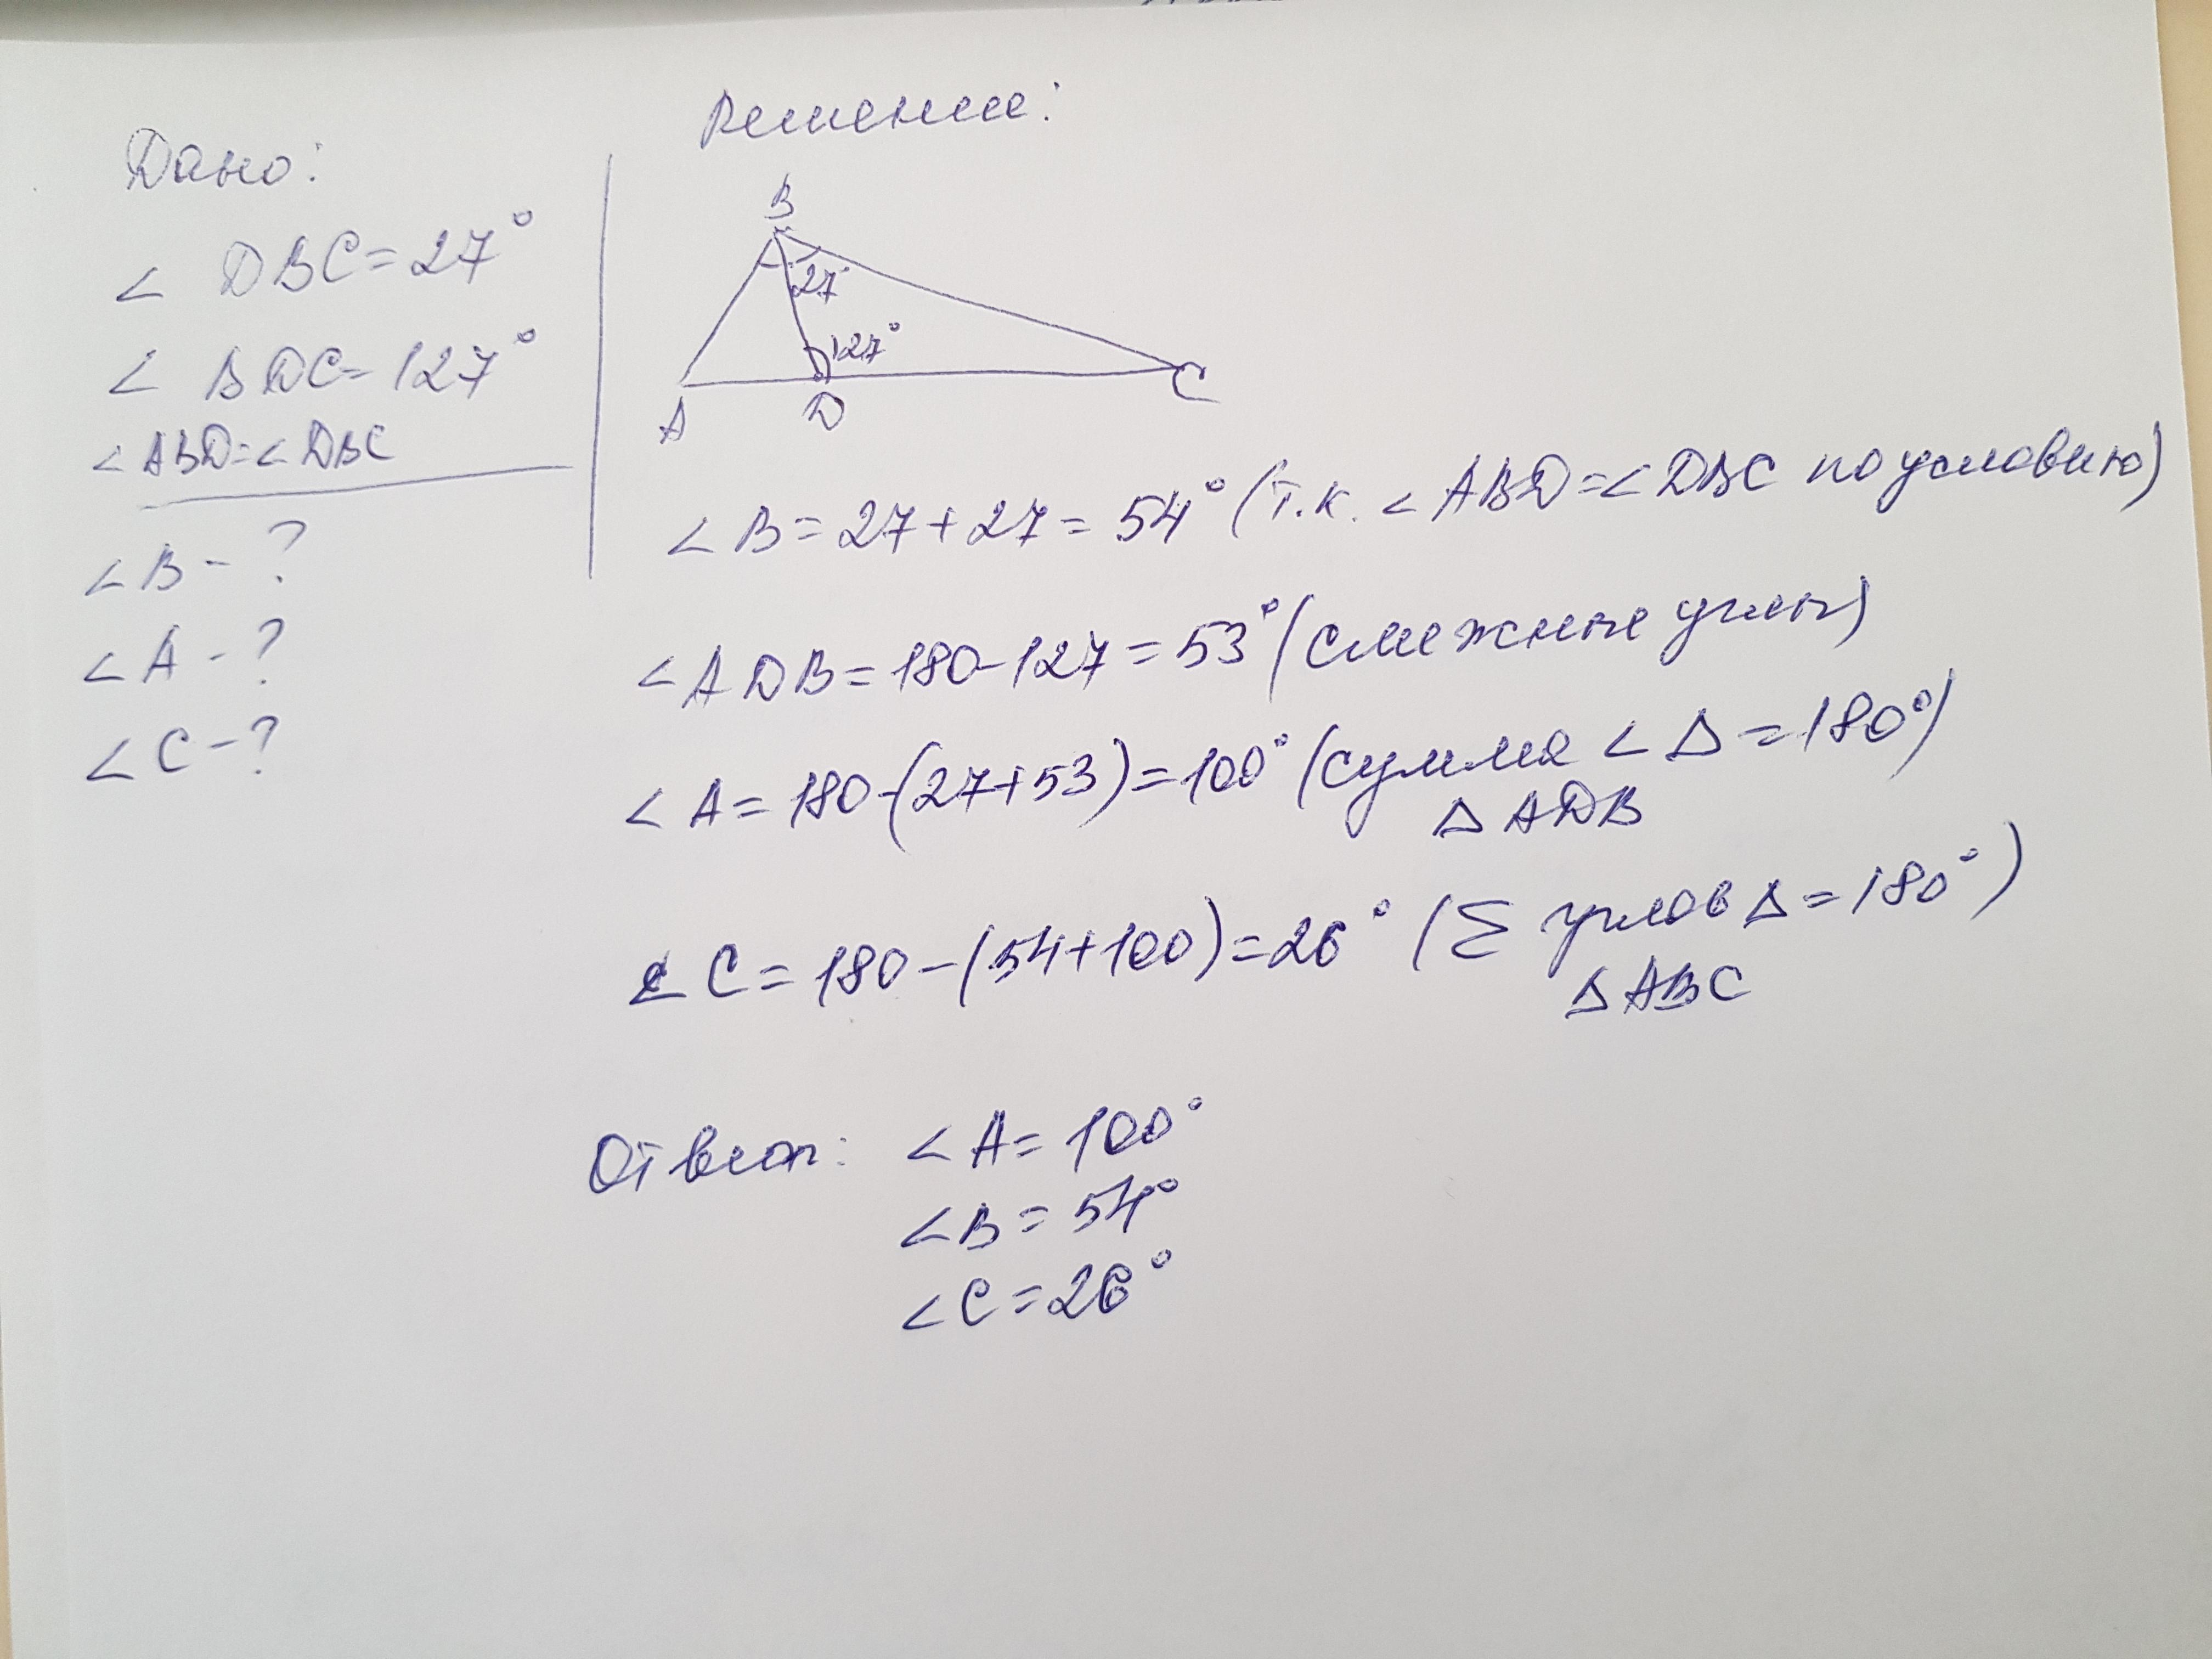 Дано:
∠ DBC = 27°
∠ BDC = 127°
∠ ABD = ∠ DBC
∠ B - ?
∠ A - ?
∠ C - ?
Решение:
B
27°
127°
A
D
C
∠ B = 27 + 27 = 54° (т.к. ∠ ABD = ∠ DBC по условию)
∠ ADB = 180 - 127 = 53° (смежные углы)
∠ A = 180 - (27 + 53) = 100° (сумма ∠ Δ = 180°)
Δ ADB
∠ C = 180 - (54 + 100) = 26° (Σ углов Δ = 180°)
Δ ABC
Ответ: ∠ A = 100°
∠ B = 54°
∠ C = 26°